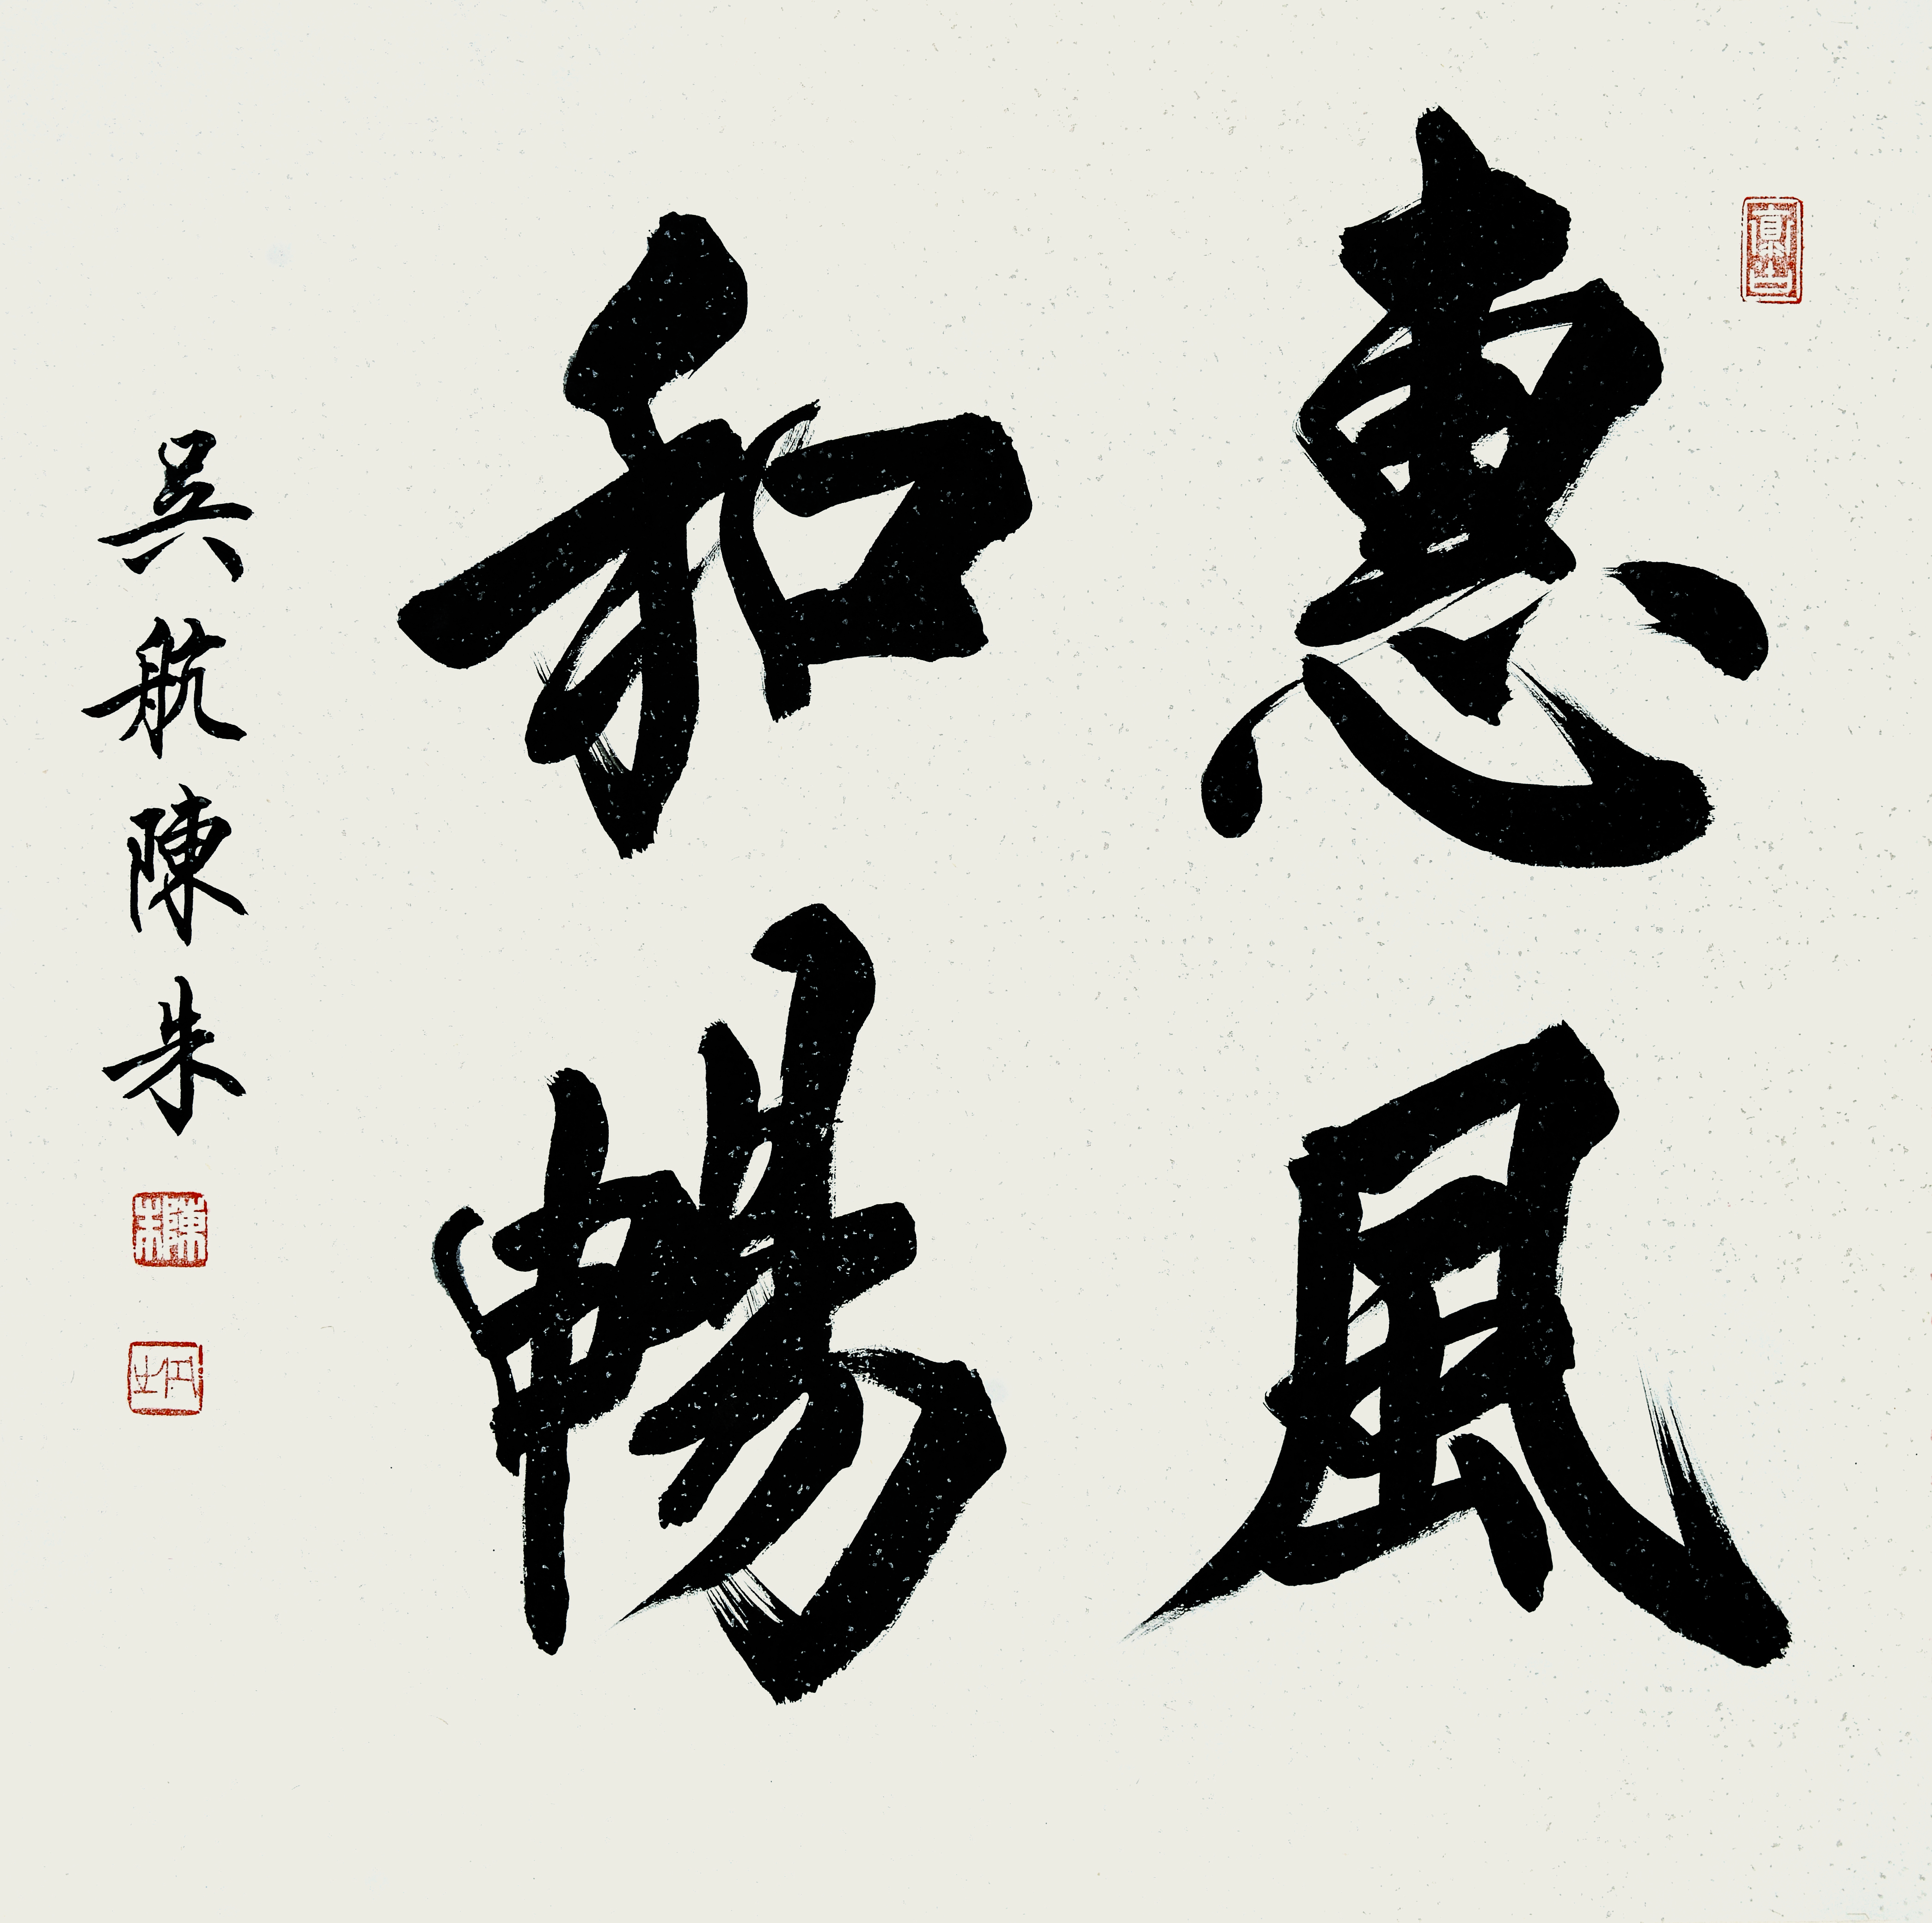 惠風
和暢
吳航陳朱
陳朱